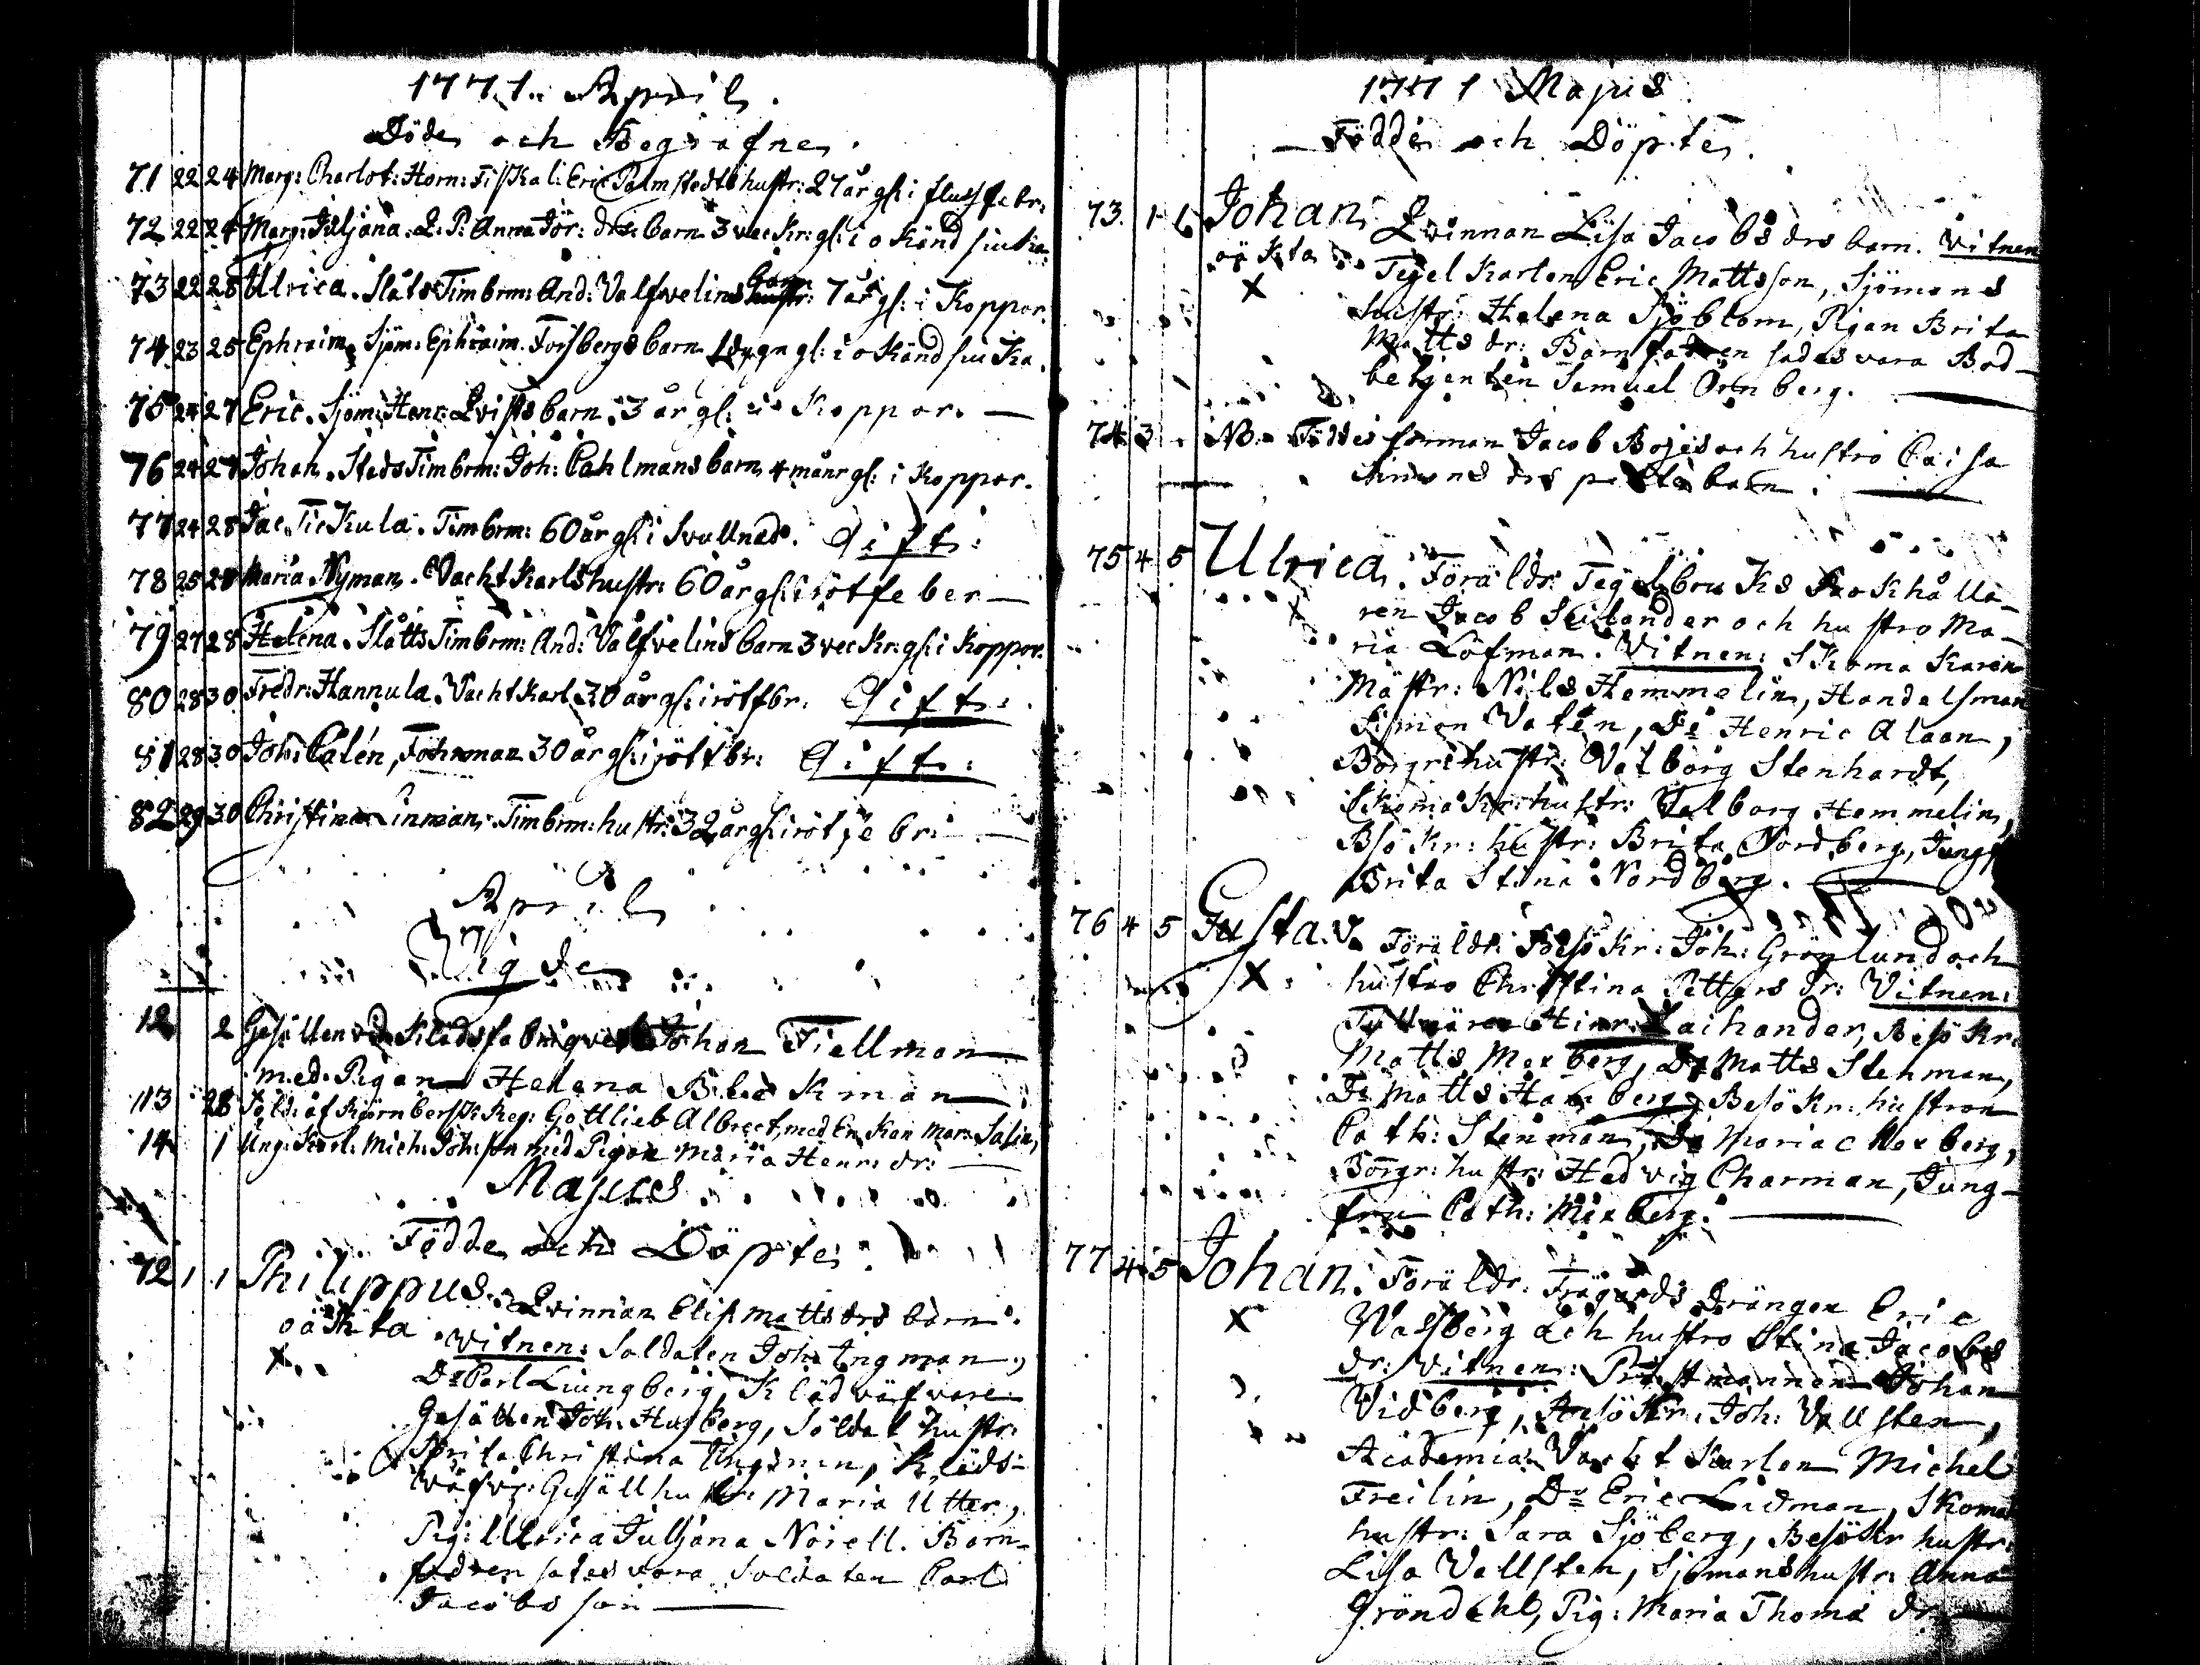 1771. April.
Döde och Begrafne.
71 22 24 Marg: Charlot: Horn: Fiskal: Eric Palmstedts hustr: 27 år gl: i flussfebr:
72 22 24 Marg: Juljana. Q. P. Anna Jör: drs: barn 3 veckr: gl: i okänd siuka
73 22 28 Ulrica. Slåts Timbrm: And: Valfvelins barn 7 år gl: i Koppor.
74 23 25 Ephraim. Sjöm: Ephraim Forsbergs barn dygn gl: i okänd siuka.
75 24 27 Eric. Sjöm: Henr: Qvists barn. 3 år gl: i Koppor. —
76 24 27 Johan. Stads Timbrm: Joh: Cahlmans barn 4 månr gl: i Koppor.
77 24 28 Jac. Tickula. Timbrm: 60 år gl: i Svullnad. Gift:
78 25 28 Maria Nyman. Vachtkarls hustr: 60 år gl: i rötfeber —
79 27 28 Helena. Slåtts Timbrm: And: Valfvelins barn 3 veckr: gl: i Koppor.
80 28 30 Fredr: Hannula. Vachtkarl 30 år gl: i rötfbr. Gift:
81 28 30 Joh: Calén, Fohrman 30 år gl: i rötfbr: Gift:
82 29 30 Christina Linman. Timbrm: hustr: 32 år gl: i rötfebr: —
April
Vigde
12 2 Gesällen vid Klädsfabriqvet Johan Tiellman
med Pigan Helena Bleckman
13 28 Sold: af Reg: Gottlieb Albrect, med Enkan Mar: Salin,
14 1 Ung: Karl: Mich: Johsson med Pigan Maria Henr: dr: —
Majus
Födde och Döpte.
72 1 1 Philippus. Qvinnan Elis: Mattsdrs barn.
oäkta Vitnen: Soldaten Joh: Ingman,
X Do Carl Liungberg, Klädväfvare
Gesällen Joh: Husberg, Soldat hustr:
Brita Christina Ingman, Kläds-
väfvr: Gesäll hustr: Maria Utter,
Pig: Ulrica Juljana Noiell. Barn-
fadren sades vara Soldaten Carl
Jacobsson —
1771 Majus
Födde och Döpte.
73. 1 6 Johan. Qvinnan Lisa Jacobsdrs barn. Vitnen
oäkta Tegelkarlen Eric Mattsson, Sjömans
X hustr: Helena Sjöblom, Pigan Brita
Mattsdr: Barnfadren sades vara Bod-
betjenten Samuel Örnberg. —
74 3 NB. Föddes forman Jacob Bojes och hustro Caisa
Simonsdrs barn. —
75 4 5 Ulrica. Föräldr: Tegelbruks Bokhålla-
X ren Jacob Seilander och hustro Ma-
ria Löfman. Vitnen: Skomakaren
Mästr: Nils Hemmelin, Handelsman
Simon Valen, Do Henric Alaan,
Borgr: hustr: Valborg Stenhardt,
Skomakr: hustr: Valborg Hemmelin,
Bsökr: hustr: Brita Nordberg, Jungf
Brita Stina Nordberg.
76 4 5 Gustav. Föräldr: Besökr: Joh: Grönlund och
X hustro Christina Petters dr: Vitnen:
Tullnären Hinr: Laihander, Besökr:
Matts Mexberg, Do Matts Stenman,
Do Matts Hamberg, Besökr: hustron
Cath: Stenman, Do Maria Mexberg,
Borgr: hustr: Hedvig Charman, Jung-
fru Cath: Mexberg. —
77 4 5 Johan. Föräldr: Trägårds Drängen Eric
X Vassberg och hustro Stina Jacobs
dr: Vitnen: Johan
Vidberg, Besökr: Joh: Vallsten,
Academia Vachtkarlen Michel
Freilin, Do Eric Lidman, Skoma
hustr: Sara Sjöberg, Besökr hustr:
Lisa Vallsten, Sjömans hustr: Anna
Gröndahl, Pig: Maria Thoma dr —